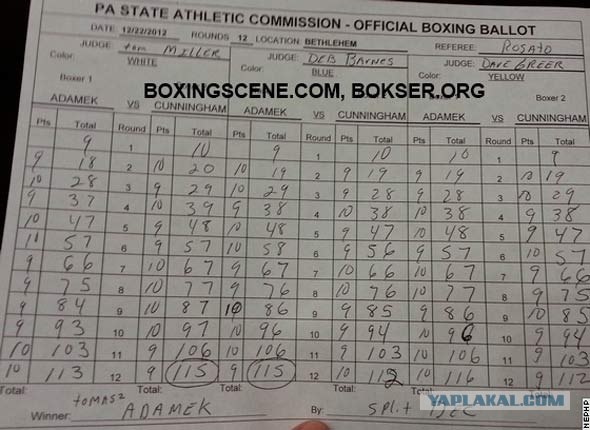 PA STATE ATHLETIC COMMISSION - OFFICIAL BOXING BALLOT
DATE 12/22/2012 ROUNDS 12 LOCATION BETHLEHEM
JUDGE: tom MILLER JUDGE: DEB BARNES REFEREE: ROSATO
JUDGE: DAVE GREER
Color: WHITE Color: BLUE Color: YELLOW
BOXINGSCENE.COM, BOKSER.ORG
Boxer 1 Boxer 2
ADAMEK VS CUNNINGHAM ADAMEK VS CUNNINGHAM ADAMEK VS CUNNINGHAM
Pts Total Round Pts Total Pts Total Round Pts Total Pts Total Round Pts Total
9 1 10 9 1 10 10 1 9
9 18 2 10 20 10 19 2 9 19 9 19 2 10 19
10 28 3 9 29 10 29 3 9 28 9 28 3 10 29
9 37 4 10 39 9 38 4 10 38 10 38 4 9 38
10 47 5 9 48 10 48 5 9 47 10 48 5 9 47
10 57 6 9 57 10 58 6 9 56 9 57 6 10 57
9 66 7 10 67 9 67 7 10 66 10 67 7 9 66
9 75 8 10 77 9 76 8 10 76 10 77 8 9 75
9 84 9 10 87 10 86 9 9 85 9 86 9 10 85
9 93 10 10 97 10 96 10 9 94 10 96 10 9 94
10 103 11 9 106 10 106 11 9 103 10 106 11 9 103
10 113 12 9 115 9 115 12 10 112 10 116 12 9 112
Total: Total: Total: Total: Total:
Winner: TOMASZ ADAMEK By: SPLIT DEC
YAPLAKAL.COM
NEPHP